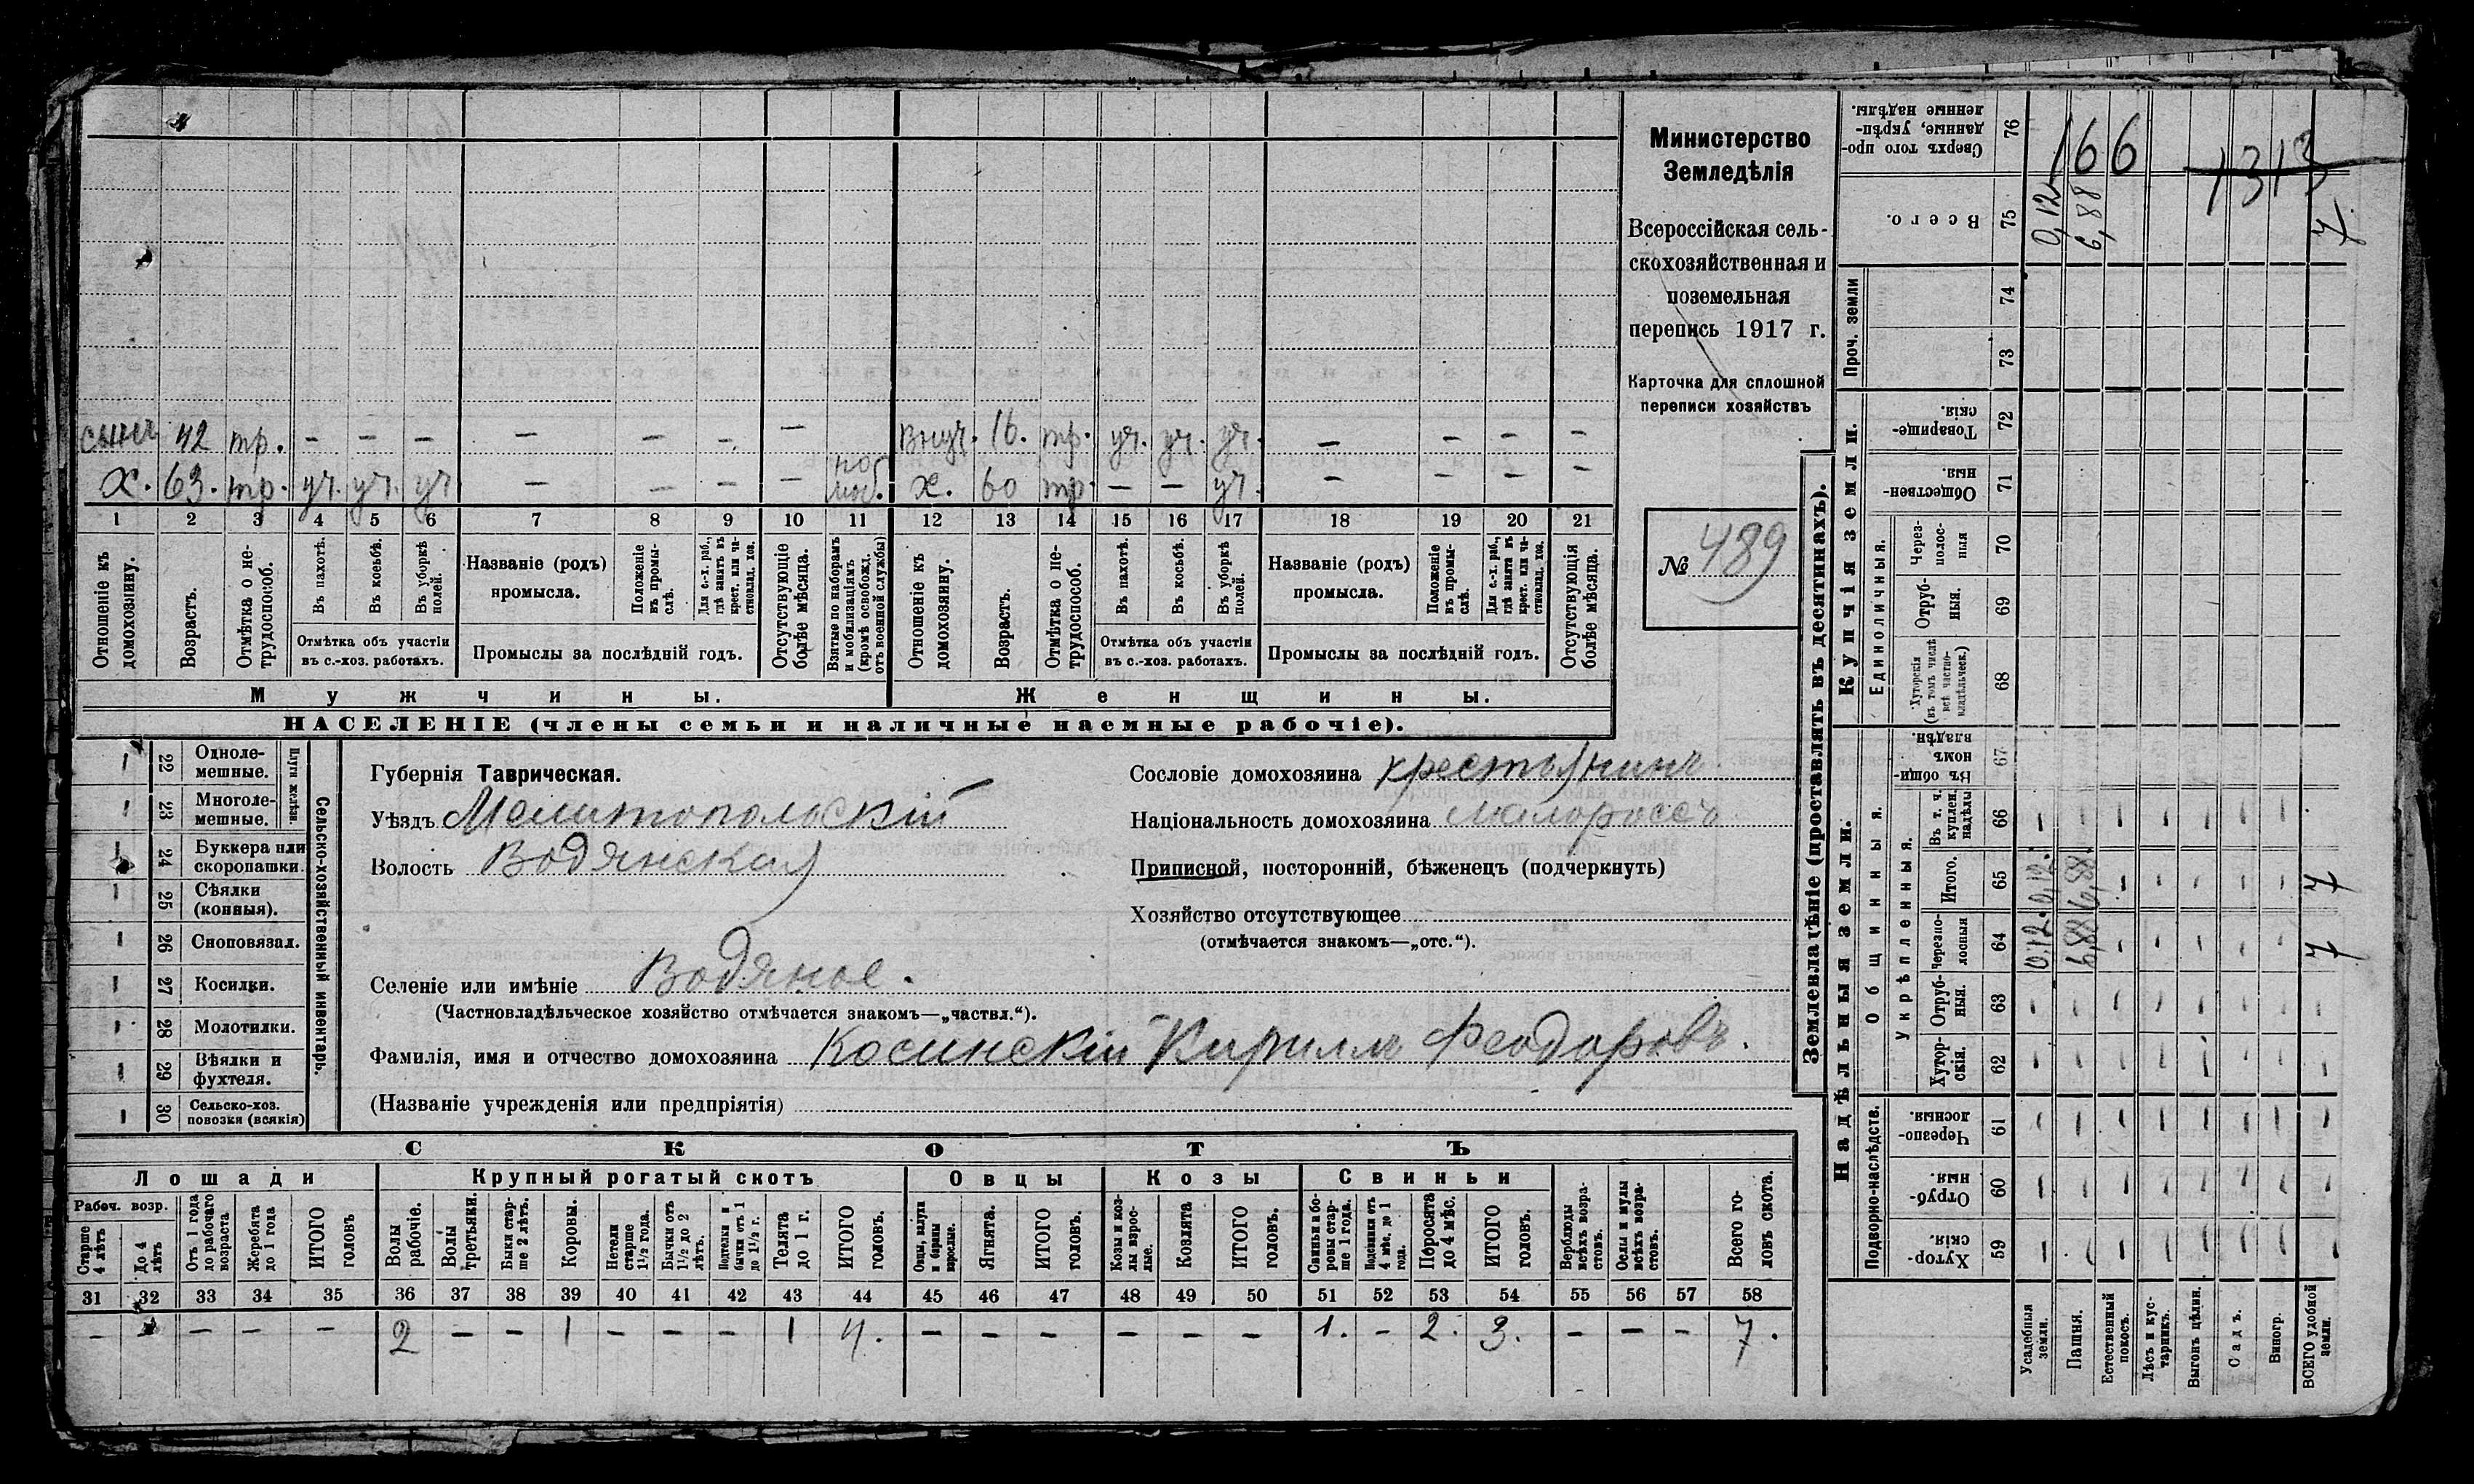 Министерство
Земледѣлія
Всероссійская сель-
скохозяйственная и
поземельная
перепись 1917 г.
Карточка для сплошной
переписи хозяйствъ
№ 489
сынъ 42 тр. – – – – – – – Внуч. 16. тр. уч. уч. уч. – – – –
моб.
Х. 63. тр. уч. уч. уч – – – – х. 60 тр. – – уч. – – – –
1 2 3 4 5 6 7 8 9 10 11 12 13 14 15 16 17 18 19 20 21
Отношеніе къ домохозяину.
Возрастъ.
Отмѣтка о не-трудоспособ.
Въ пахотѣ.
Въ косьбѣ.
Въ уборкѣ полей.
Отмѣтка объ участіи
въ с.-хоз. работахъ.
Названіе (родъ)
промысла.
Положеніе въ промы-слѣ.
Для с.-х. раб., гдѣ занятъ въ крест. или ча-стновлад. хоз.
Промыслы за послѣдній годъ.
Отсутствующіе болѣе мѣсяца.
Взятые по наборамъ и мобилизаціямъ (кромѣ освобожд. отъ военной службы)
Отношеніе къ домохозяину.
Возрастъ.
Отмѣтка о не-трудоспособ.
Въ пахотѣ.
Въ косьбѣ.
Въ уборкѣ полей.
Отмѣтка объ участіи
въ с.-хоз. работахъ.
Названіе (родъ)
промысла.
Положеніе въ промы-слѣ.
Для с.-х. раб., гдѣ занята въ крест. или ча-стновлад. хоз.
Промыслы за послѣдній годъ.
Отсутствующія болѣе мѣсяца.
Мужчины.
Женщины.
НАСЕЛЕНІЕ (члены семьи и наличные наемные рабочіе).
Сельско-хозяйственный инвентарь.
Плуги желѣзн.
– 22 Одноле-мешные.
– 23 Многоле-мешные.
– 24 Буккера или скоропашки.
– 25 Сѣялки (конныя).
– 26 Сноповязал.
– 27 Косилки.
– 28 Молотилки.
– 29 Вѣялки и фухтеля.
– 30 Сельско-хоз. повозки (всякія)
Губернія Таврическая.
Уѣздъ Мелитопольскій
Волость Водянская
Селеніе или имѣніе Водяное.
(Частновладѣльческое хозяйство отмѣчается знакомъ—„частвл.“).
Фамилія, имя и отчество домохозяина Косинскій Кириллъ Феодоровъ.
(Названіе учрежденія или предпріятія)
Сословіе домохозяина крестьянинъ
Національность домохозяина малороссъ
Приписной, посторонній, бѣженецъ (подчеркнуть)
Хозяйство отсутствующее
(отмѣчается знакомъ—„отс.“).
СКОТЪ
Лошади
Крупный рогатый скотъ
Овцы
Козы
Свиньи
Рабоч. возр.
Старше 4 лѣтъ
До 4 лѣтъ
Отъ 1 года до рабочаго возраста
Жеребята до 1 года
ИТОГО головъ
Волы рабочіе.
Волы третьяки.
Быки стар-ше 2 лѣтъ.
Коровы.
Нетели старше 1½ года.
Бычки отъ 1½ до 2 лѣтъ.
Подтелки и бычки отъ 1 до 1½ г.
Телята до 1 г.
ИТОГО головъ.
Овцы, валухи и бараны взрослые.
Ягнята.
ИТОГО головъ.
Козы и коз-лы взрос-лые.
Козлята
ИТОГО головъ.
Свиньи и бо-ровы стар-ше 1 года.
Подсвинки отъ 4 мѣс. до 1 года.
Поросята до 4 мѣс.
ИТОГО головъ.
Верблюды всѣхъ возра-стовъ.
Ослы и мулы всѣхъ возра-стовъ.
Всего го-ловъ скота.
31 32 33 34 35 36 37 38 39 40 41 42 43 44 45 46 47 48 49 50 51 52 53 54 55 56 57 58
– – – – – 2 – – 1 – – – 1 4. – – – – – – 1. – 2. 3. – – – 7.
Землевладѣніе (проставлять въ десятинахъ).
Купчія земли.
Надѣльныя земли.
Проч. земли
Единоличныя.
Общинныя.
Укрѣпленныя.
Подворно-наслѣдств.
Сверхъ того про-данные, укрѣп-ленные надѣлы. 76
166
1313
Всего. 75 0,12 6,88 7
74
73
Товарище-скія. 72
Обществен-ныя 71
Через-полос-ныя 70
Отруб-ныя. 69
Хуторскія (въ томъ числѣ всѣ частно-владѣльческ.) 68
Въ общин-номъ владѣн. 67
Въ т. ч. куплен. надѣлы 66 – – – – – – –
Итого. 65 0,12. 6,88 – – – – – 7
Черезпо-лосныя 64 0,12. 6,88 – – – – – 7
Отруб-ныя. 63 – – – – – – – –
Хутор-скія. 62 – – – – – – – –
Черезпо-лосныя 61 – – – – – – – –
Отруб-ныя 60 – – – – – – – –
Хутор-скія. 59 – – – – – – – –
Усадебныя земли.
Пашня.
Естественный покосъ.
Лѣсъ и кус-тарникъ.
Выгонъ цѣлин.
Садъ.
Виногр.
ВСЕГО удобной земли.